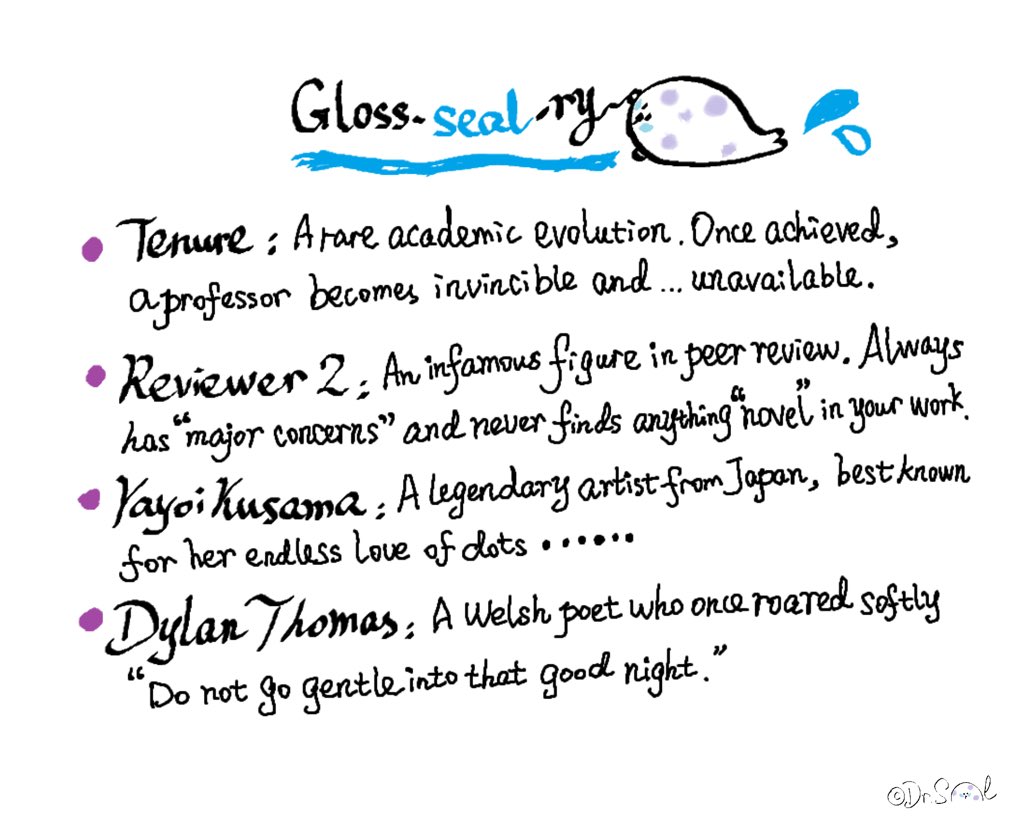 Gloss-seal-ry
Tenure: A rare academic evolution. Once achieved,
a professor becomes invincible and... unavailable.
Reviewer 2: An infamous figure in peer review. Always
has "major concerns" and never finds anything "novel" in your work.
Yayoi Kusama: A legendary artist from Japan, best known
for her endless love of dots ······
Dylan Thomas: A Welsh poet who once roared softly
"Do not go gentle into that good night."
©Dr.Seal